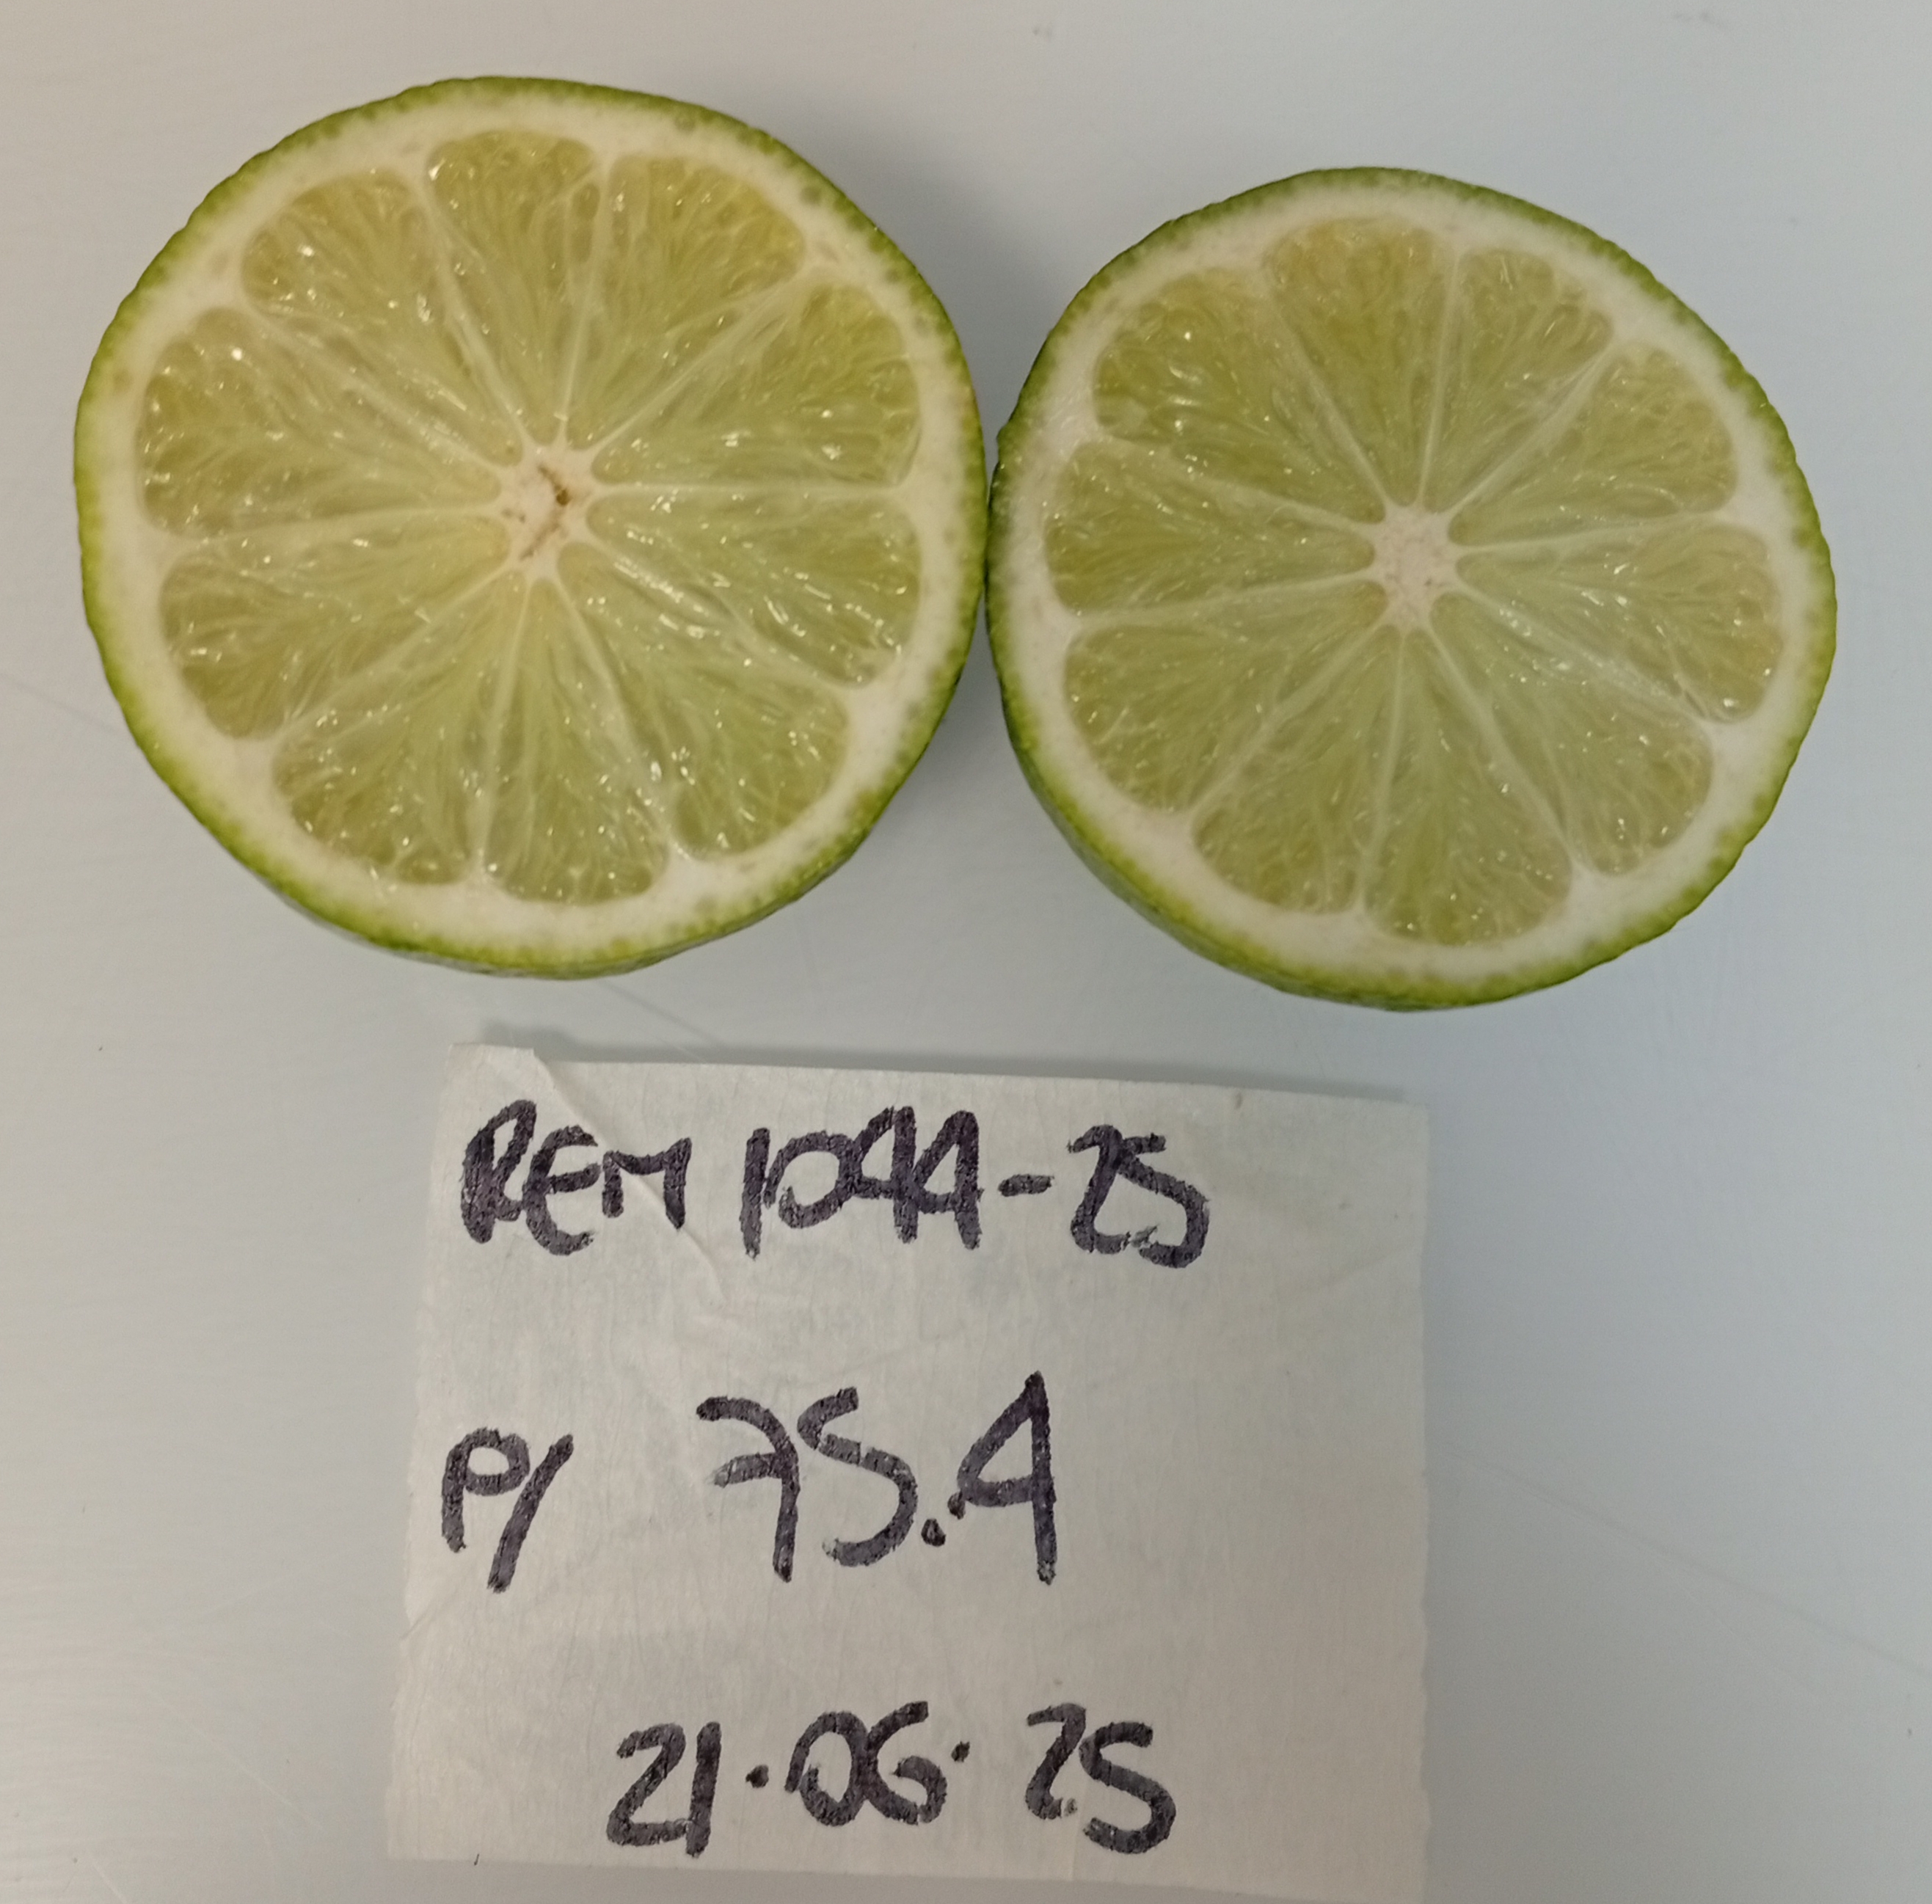 REM 1044-25
P/ 75.4
21.06.25